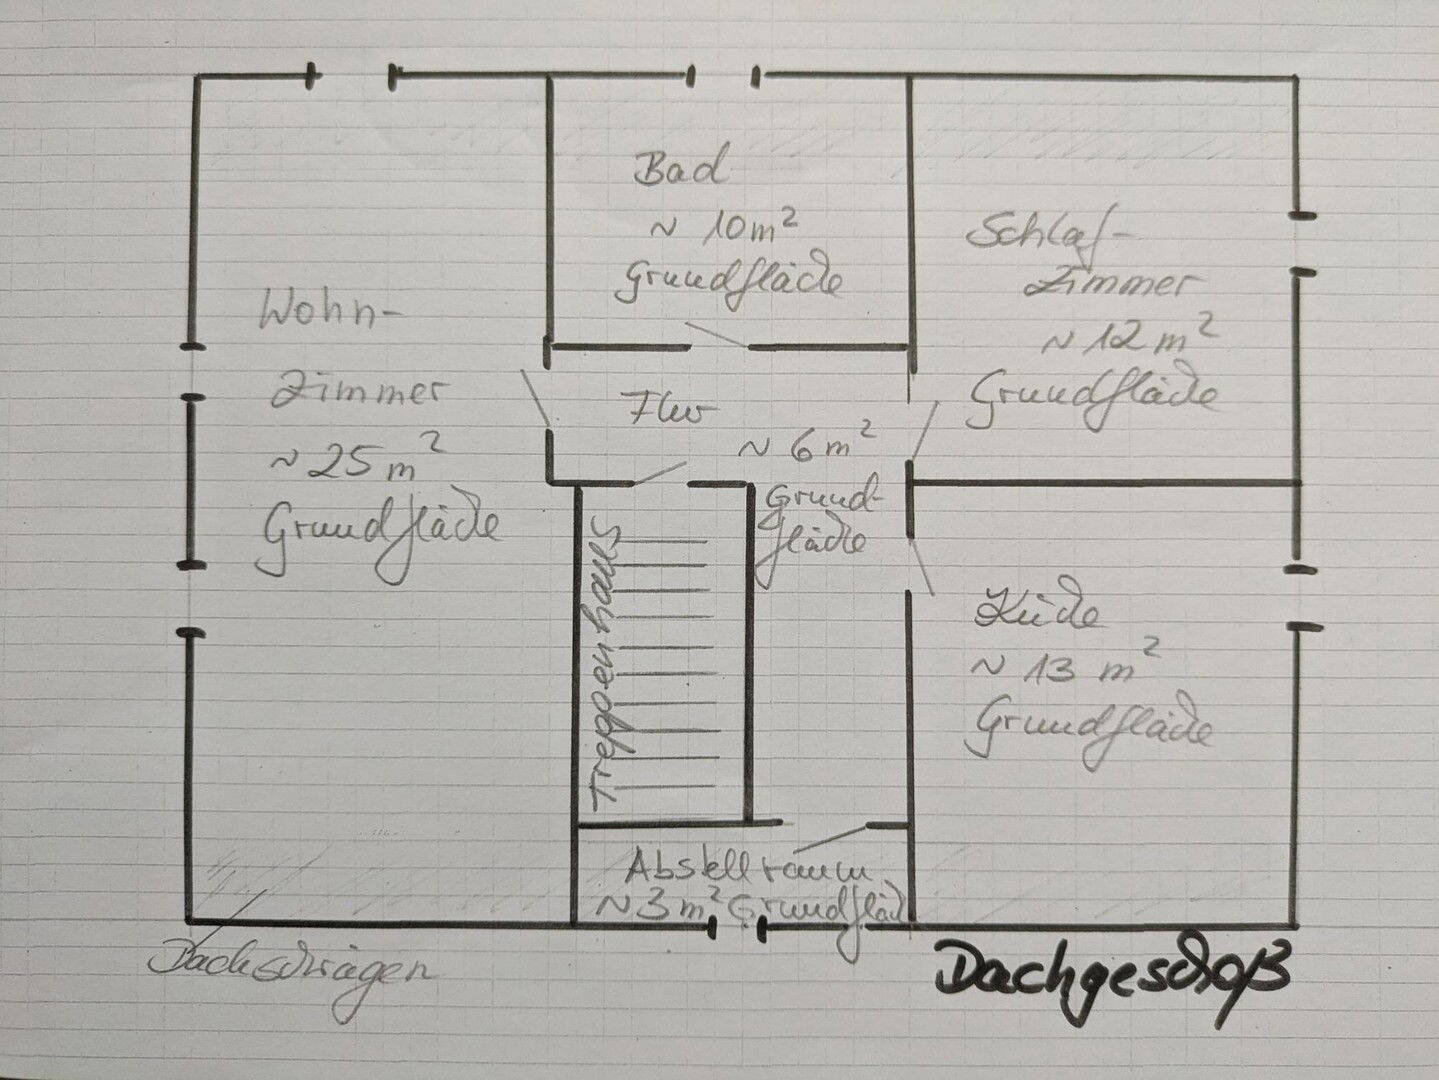 Bad
~ 10 m²
Grundfläche
Schlaf-
zimmer
~ 12 m²
Grundfläche
Wohn-
zimmer
~ 25 m²
Grundfläche
Flur
~ 6 m²
Grund-
fläche
Treppenhaus
Küche
~ 13 m²
Grundfläche
Abstellraum
~ 3 m² Grundfläch
Dachschrägen
Dachgeschoß